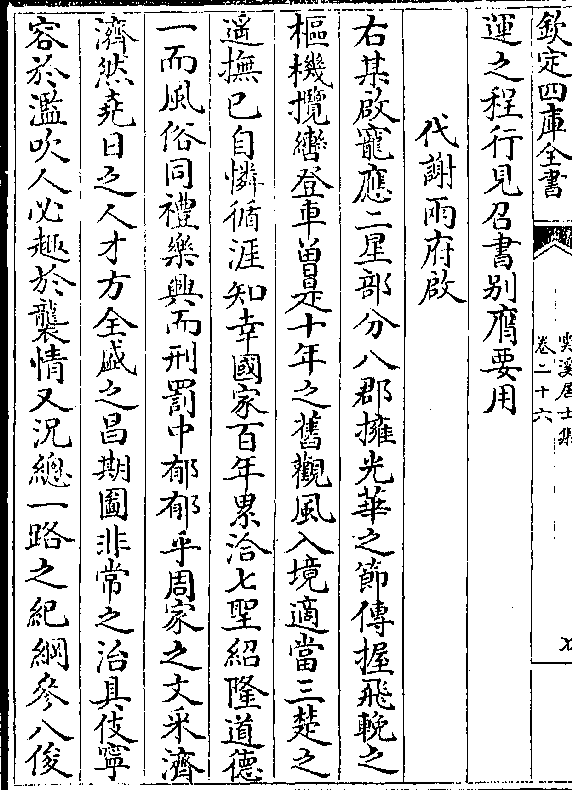 欽定四庫全書
雲溪居士集
卷二十六
運之程行見召書别膺要用
代謝兩府啟
右某啟寵應二星部分八郡擁光華之節傳握飛輓之
樞機攬轡登車曽是十年之舊觀風入境適當三楚之
遥撫已自憐循涯知幸國家百年累洽七聖紹隆道德
一而風俗同禮樂興而刑罰中郁郁乎周家之文采濟
濟然堯日之人才方全盛之昌期圖非常之治具伎寧
容於濫吹人必趣於襲情又況總一路之紀綱參八俊